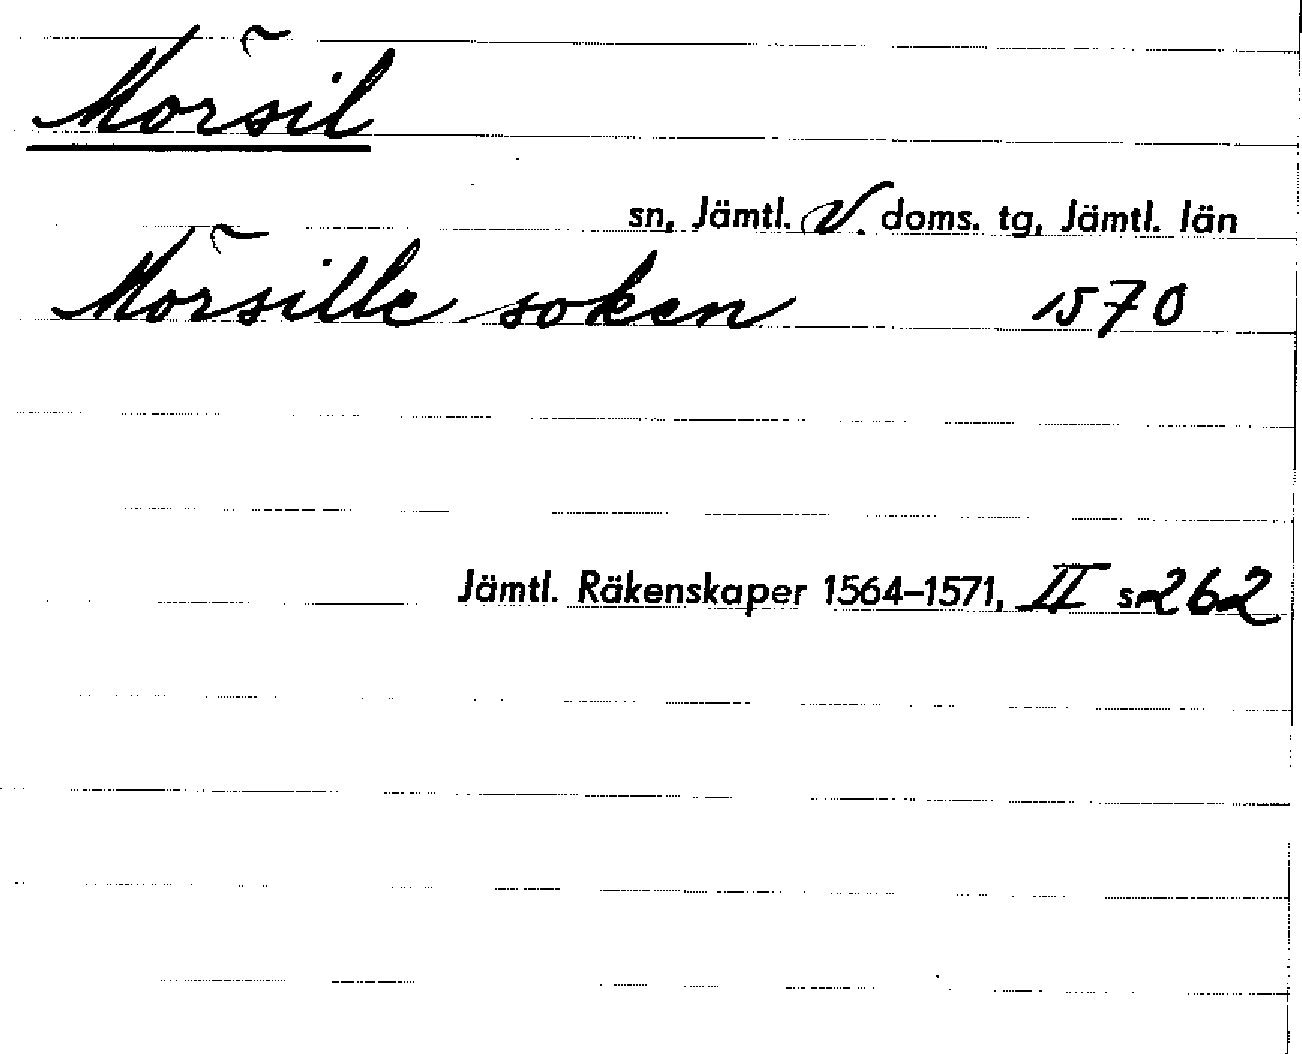 Mörsil
sn, Jämtl. V. doms. tg, Jämtl. län
Mörsille soken 1570
Jämtl. Räkenskaper 1564–1571, II s. 262